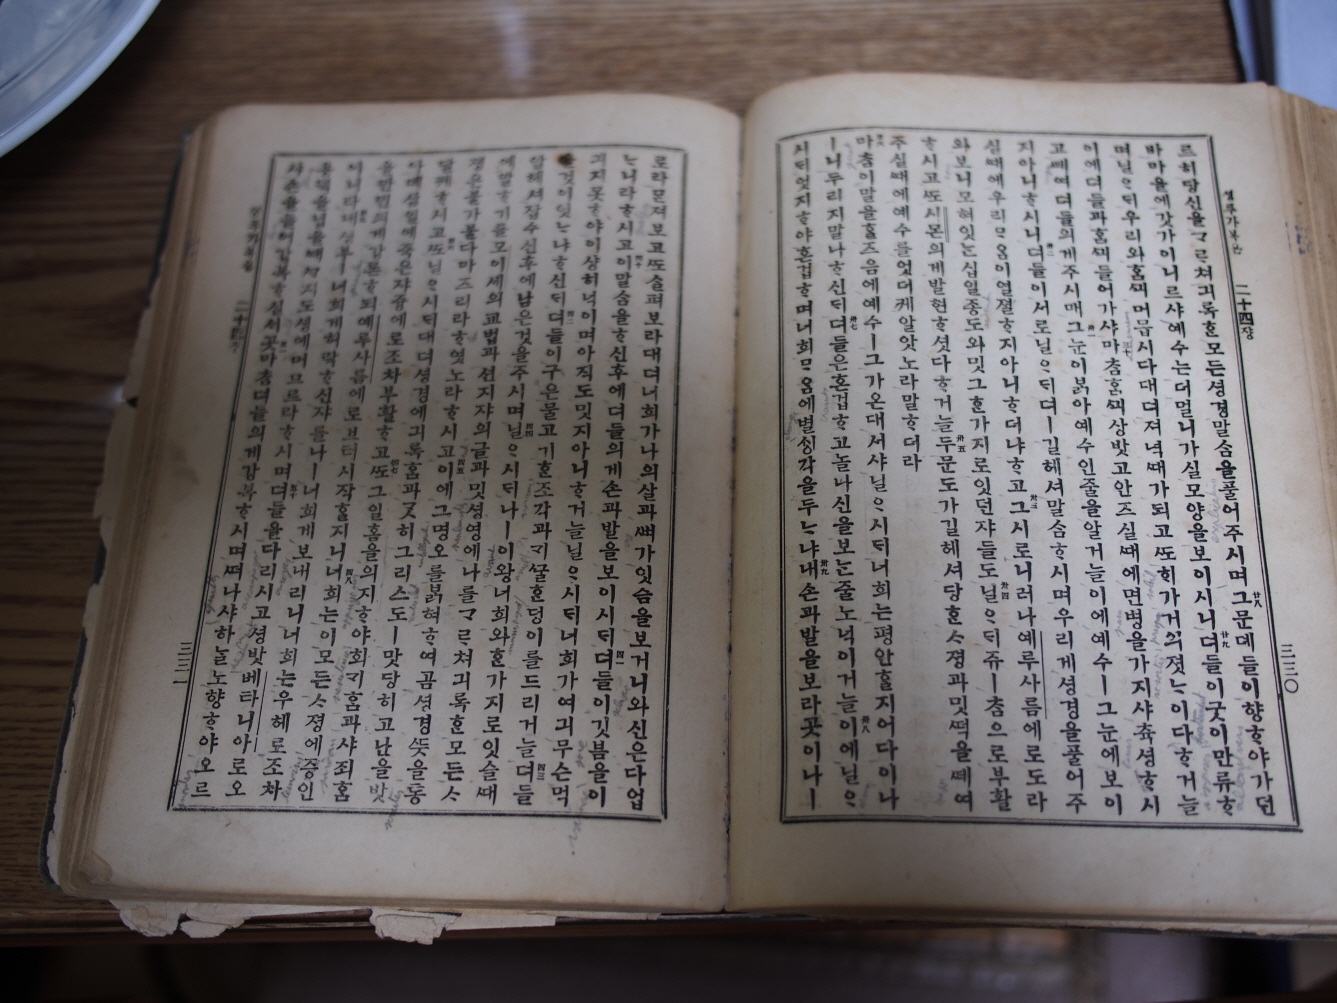 二十四쟝
三三〇
르히당신을ᄀᆞᄅᆞ쳐긔록ᄒᆞᆫ모든셩경말ᄉᆞᆷ을풀어주시며그문데들이향ᄒᆞ야가던
바마을에갓가이니르샤예수는더멀니가실모양을보이시니뎌들이굿이만류ᄒᆞ
며닐ᄋᆞᄃᆡ우리와홈ᄭᅴ머믑시다대뎌져녁ᄯᅢ가되고ᄯᅩ히가거의졋ᄂᆞ이다ᄒᆞ거늘
이에뎌들과홈ᄭᅴ들어가샤마ᄎᆞᆷ홈ᄭᅴ상밧고안즈실ᄯᅢ에면병을가지샤츅셩ᄒᆞ시
고ᄯᅦ여뎌들의게주시매그눈이붉아예수인줄을알거늘이에예수ㅣ그눈에보이
지아니ᄒᆞ시니뎌들이서로닐ᄋᆞᄃᆡ뎌ㅣ길헤셔말ᄉᆞᆷᄒᆞ시며우리게셩경을풀어주
실ᄯᅢ에우리ᄆᆞᄋᆞᆷ이열졀ᄒᆞ지아니ᄒᆞ더냐ᄒᆞ고그시로니러나예루사름에로도라
와보니모혀잇ᄂᆞᆫ십일종도와밋그ᄒᆞᆫ가지로잇던쟈들도닐ᄋᆞᄃᆡ쥬ㅣᄎᆞᆷ으로부활
ᄒᆞ시고ᄯᅩ시몬의게발현ᄒᆞ셧다ᄒᆞ거늘두문도가길헤셔당ᄒᆞᆫᄉᆞ졍과밋떡을ᄯᅦ여
주실ᄯᅢ에예수를엇더케알앗노라말ᄒᆞ더라
마ᄎᆞᆷ이말을ᄒᆞᆯ즈음에예수ㅣ그가온대서샤닐ᄋᆞ시ᄃᆡ너희는평안ᄒᆞᆯ지어다이나
ㅣ니두리지말나ᄒᆞ신ᄃᆡ뎌들은혼겁ᄒᆞ고놀나신을보ᄂᆞᆫ줄노녁이거늘이에닐ᄋᆞ
시ᄃᆡ엇지ᄒᆞ야혼겁ᄒᆞ며너희ᄆᆞᄋᆞᆷ에별ᄉᆡᆼ각을두ᄂᆞ냐내손과발을보라곳이나ㅣ
로라만져보고ᄯᅩᄉᆞᆯ펴보라대뎌너희가나의살과ᄲᅧ가잇ᄉᆞᆷ을보거니와신은다업
ᄂᆞ니라ᄒᆞ시고이말ᄉᆞᆷ을ᄒᆞ신후에뎌들의게손과발을보이시ᄃᆡ뎌들이깃븜을이
긔지못ᄒᆞ야이상히녁이며아직도밋지아니ᄒᆞ거늘닐ᄋᆞ시ᄃᆡ너희가여긔무슨먹
을것이잇ᄂᆞ냐ᄒᆞ신ᄃᆡ뎌들이구은물고기ᄒᆞᆫ조각과ᄭᅮᆯᄒᆞᆫ덩이를드리거늘뎌들
압헤셔잡수신후에남은것을주시며닐ᄋᆞ시ᄃᆡ나ㅣ이왕너희와ᄒᆞᆫ가지로잇슬ᄯᅢ
에말ᄒᆞ기를모이세의교법과션지쟈의글과밋셩영에나를ᄀᆞᄅᆞ쳐긔록ᄒᆞᆫ모든ᄉᆞ
졍은불가불다마즈리라ᄒᆞ엿노라ᄒᆞ시고이에그명오를붉혀ᄒᆞ여곰셩경ᄯᅳᆺ을통
달케ᄒᆞ시고ᄯᅩ닐ᄋᆞ시ᄃᆡ대뎌셩경에긔록홈과ᄀᆞᆺ히그리스도ㅣ맛당히고난을밧
아뎨삼일에죽은쟈즁에로조차부활ᄒᆞ고ᄯᅩ그일홈을의지ᄒᆞ야회ᄀᆡ홈과샤죄홈
을만민의게강론ᄒᆞ되예루사름에로브터시작ᄒᆞᆯ지니너희는이모든ᄉᆞ졍에증인
이니라대뎌나ㅣ너희게허락ᄒᆞ신쟈를나ㅣ너희게보내리니너희는우헤로조차
시며뎌들을다리시고셩밧베타니아로오
ᄒᆞ시며ᄯᅥ나샤하ᄂᆞᆯ노향ᄒᆞ야오르
三三一